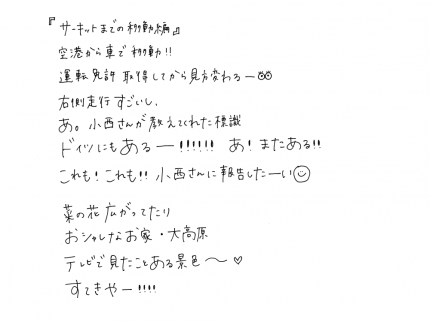 『サーキットまでの移動編』
空港から車で移動!!
運転免許 取得してから見方変わるー
右側走行すごいし、
あ。小西さんが教えてくれた標識
ドイツにもあるー!!!!!! あ!またある!!
これも!これも!!小西さんに報告したーい☺
菜の花広がってたり
おシャレなお家・大高原
テレビで見たことある景色〜♡
すてきやー!!!!